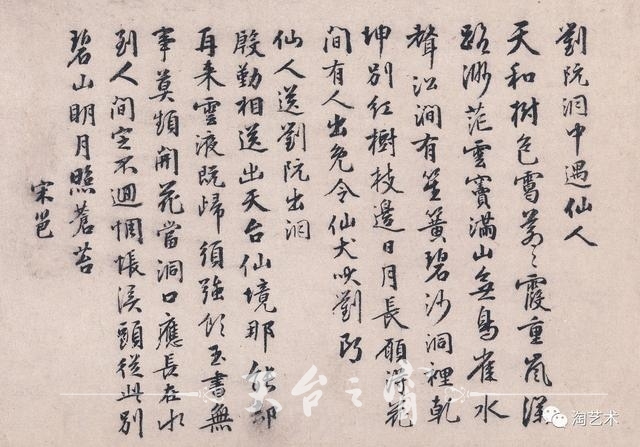 劉阮洞中遇仙人
天和樹色靄蒼々霞重嵐深
路渺茫雲竇滿山無鳥雀水
聲沿澗有笙簧碧沙洞裡乾
坤別紅樹枝邊日月長願得花
間有人出免令仙犬吠劉郎
仙人送劉阮出洞
殷勤相送出天台仙境那能却
再来雲液既歸須強飲玉書無
事莫頻開花當洞口應長在水
到人間定不迴惆悵溪頭從此別
碧山明月照蒼苔
宋邕
淘艺术